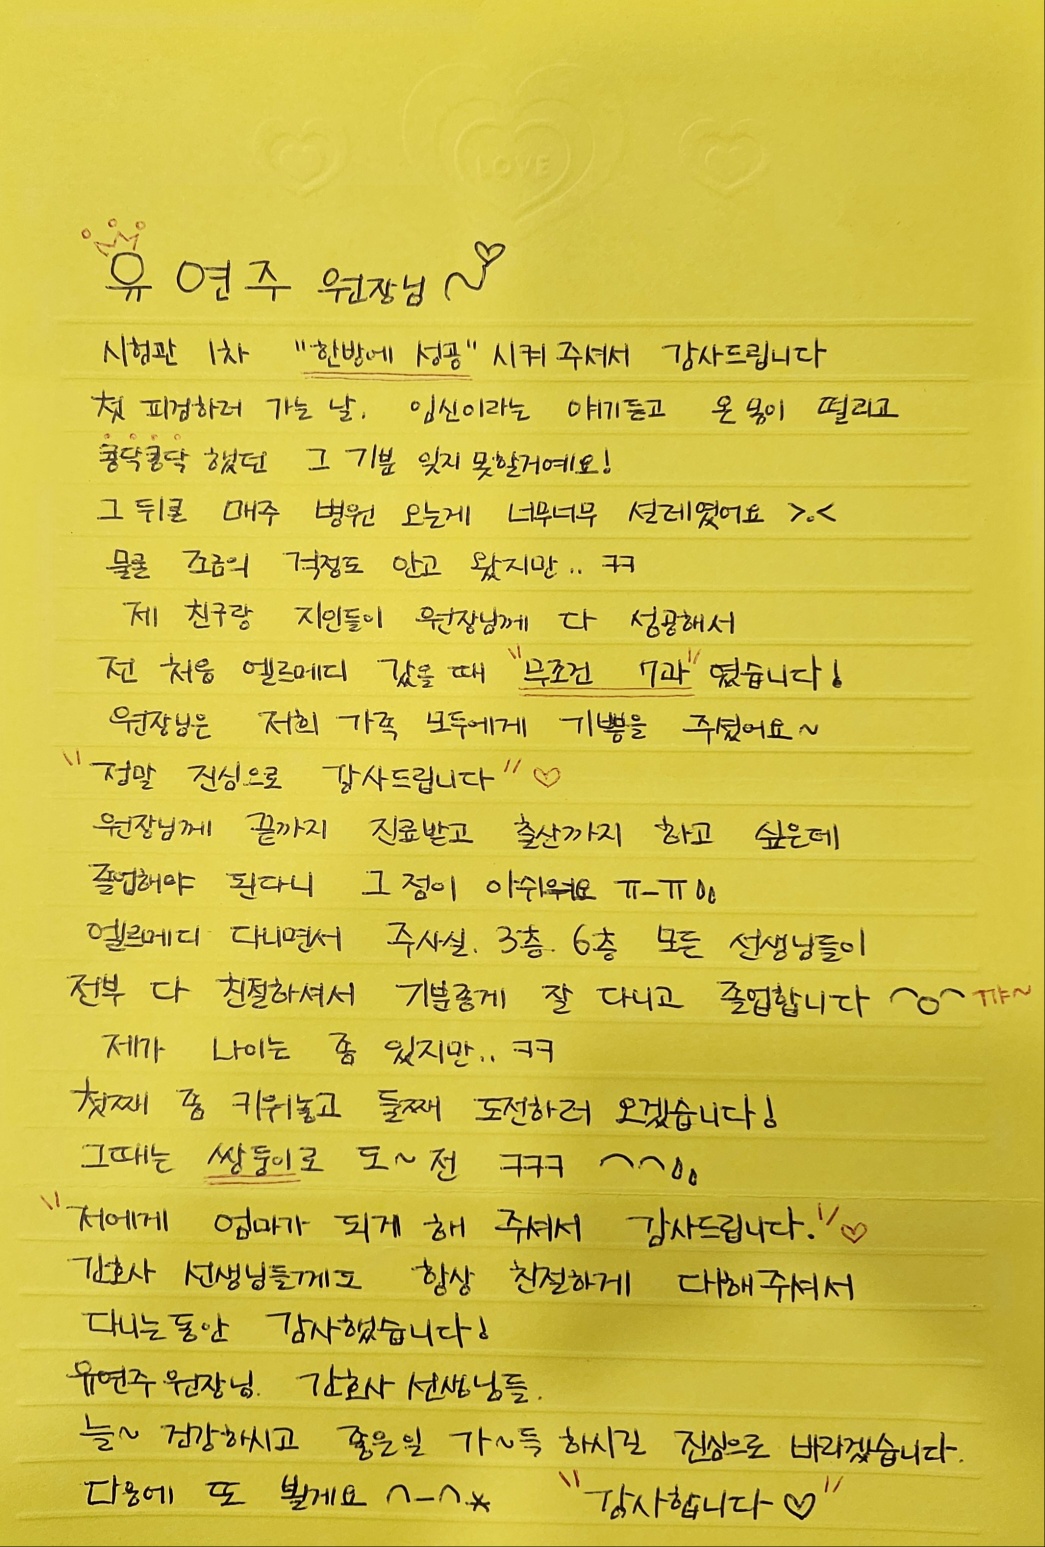 LOVE
유연주 원장님~♡
시험관 1차 "한방에 성공" 시켜 주셔서 감사드립니다
첫 피검하러 가는 날, 임신이라는 얘기듣고 온 몸이 떨리고
콩닥콩닥 했던 그 기분 잊지 못할거예요!
그 뒤로 매주 병원 오는게 너무너무 설레였어요 >.<
물론 조금의 걱정도 안고 왔지만.. ㅋㅋ
제 친구랑 지인들이 원장님께 다 성공해서
전 처음 엘르메디 갔을 때 "무조건 7과" 였습니다!
원장님은 저희 가족 모두에게 기쁨을 주셨어요~
"정말 진심으로 감사드립니다" ♡
원장님께 끝까지 진료받고 출산까지 하고 싶은데
졸업해야 된다니 그 점이 아쉬워요 ㅠ-ㅠ
엘르메디 다니면서 주사실, 3층, 6층 모든 선생님들이
전부 다 친절하셔서 기분좋게 잘 다니고 졸업합니다 ^o^ 꺄~
제가 나이는 좀 있지만.. ㅋㅋ
첫째 좀 키워놓고 둘째 도전하러 오겠습니다!
그때는 쌍둥이로 도~전 ㅋㅋㅋ ^^
"저에게 엄마가 되게 해 주셔서 감사드립니다." ♡
간호사 선생님들께도 항상 친절하게 대해주셔서
다니는동안 감사했습니다!
유연주 원장님, 간호사 선생님들,
늘~ 건강하시고 좋은일 가~득 하시길 진심으로 바라겠습니다.
다음에 또 뵐게요 ^-^* "감사합니다♡"